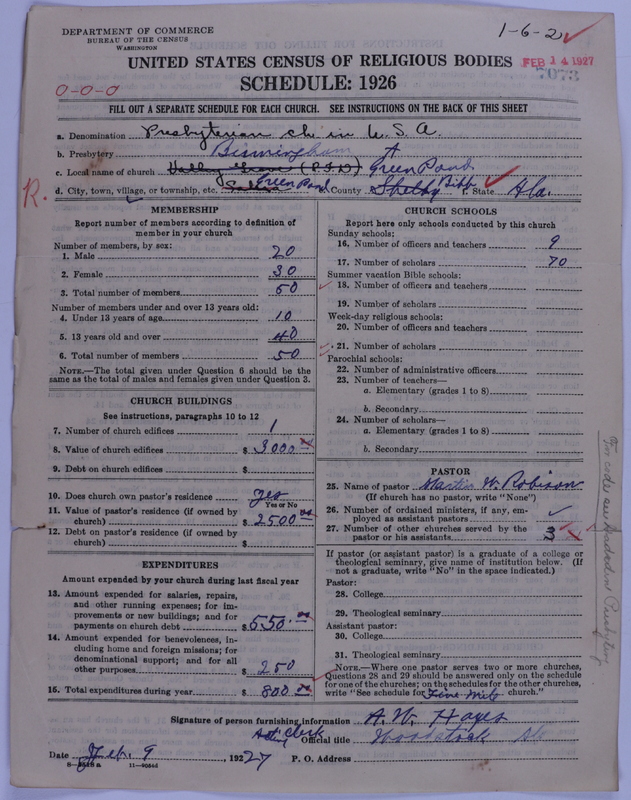 DEPARTMENT OF COMMERCE
BUREAU OF THE CENSUS
WASHINGTON
1-6-2
UNITED STATES CENSUS OF RELIGIOUS BODIES
FEB 14 1927
7073
SCHEDULE: 1926
0-0-0
FILL OUT A SEPARATE SCHEDULE FOR EACH CHURCH. SEE INSTRUCTIONS ON THE BACK OF THIS SHEET
a. Denomination Presbyterian ch in U.S.A.
b. Presbytery Birmingham A
c. Local name of church Green Pond
R.
d. City, town, village, or township, etc. Green Pond e. County Shelby Bibb f. State Ala.
MEMBERSHIP
Report number of members according to definition of
member in your church
Number of members, by sex:
1. Male 20
2. Female 30
3. Total number of members 50
Number of members under and over 13 years old:
4. Under 13 years of age 10
5. 13 years old and over 40
6. Total number of members 50
NOTE.—The total given under Question 6 should be the
same as the total of males and females given under Question 3.
CHURCH BUILDINGS
See instructions, paragraphs 10 to 12
7. Number of church edifices 1
8. Value of church edifices $ 3000.00
9. Debt on church edifices $
10. Does church own pastor's residence yes
Yes or No
11. Value of pastor's residence (if owned by
church) $ 2500.00
12. Debt on pastor's residence (if owned by
church) $
EXPENDITURES
Amount expended by your church during last fiscal year
13. Amount expended for salaries, repairs,
and other running expenses; for im-
provements or new buildings; and for
payments on church debt $ 550.00
14. Amount expended for benevolences, in-
cluding home and foreign missions; for
denominational support; and for all
other purposes $ 250
15. Total expenditures during year $ 800.00
CHURCH SCHOOLS
Report here only schools conducted by this church
Sunday schools:
16. Number of officers and teachers 9
17. Number of scholars 70
Summer vacation Bible schools:
18. Number of officers and teachers
19. Number of scholars
Week-day religious schools:
20. Number of officers and teachers
21. Number of scholars
Parochial schools:
22. Number of administrative officers
23. Number of teachers—
a. Elementary (grades 1 to 8)
b. Secondary
24. Number of scholars—
a. Elementary (grades 1 to 8)
b. Secondary
PASTOR
25. Name of pastor Martin W. Robison
(If church has no pastor, write "None")
26. Number of ordained ministers, if any, em-
ployed as assistant pastors
27. Number of other churches served by the
pastor or his assistants 3
If pastor (or assistant pastor) is a graduate of a college or
theological seminary, give name of institution below. (If
not a graduate, write "No" in the space indicated.)
Pastor:
28. College
29. Theological seminary
Assistant pastor:
30. College
31. Theological seminary
NOTE.—Where one pastor serves two or more churches,
Questions 28 and 29 should be answered only on the schedule
for one of the churches; on the schedules for the other churches,
write "See schedule for Five Mile church."
Signature of person furnishing information A. W. Hayes
Acting Clerk Official title Woodstock Ala
Date Feb. 9 1927 P. O. Address
8—
11—9054d